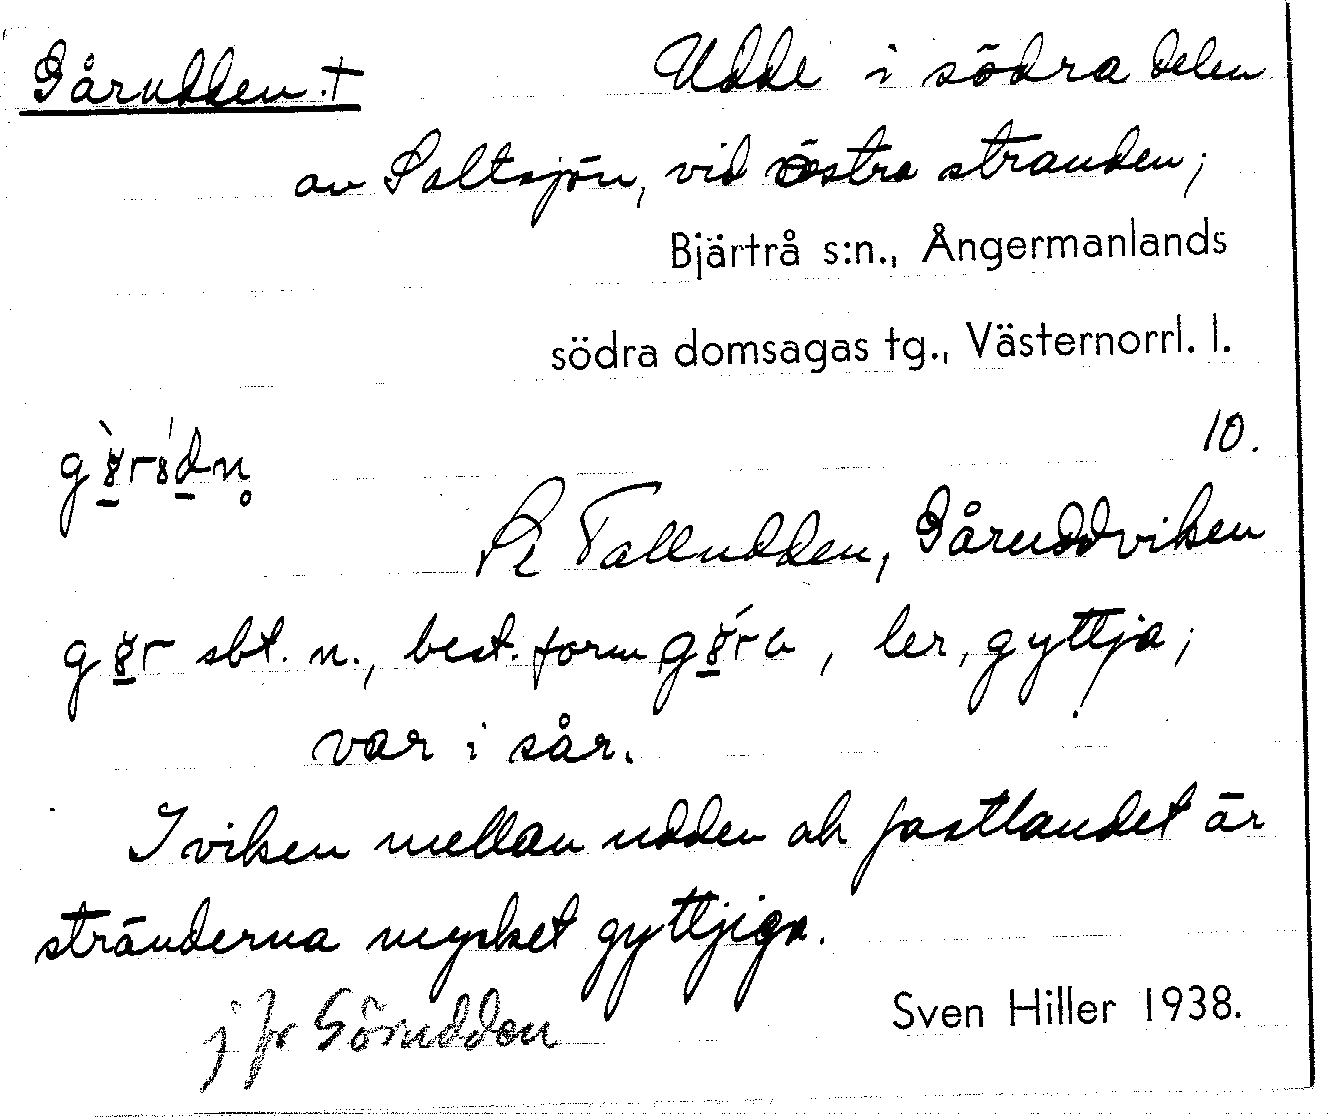 Gårudden.† Udde i södra delen
av Saltsjön, vid östra stranden;
Bjärtrå s:n., Ångermanlands
södra domsagas tg., Västernorrl. l.
10.
Talludden, Gåruddviken
sbt. n., best. form, ler, gyttja;
var i sår.
I viken mellan udden ok fastlandet är
stränderna mycket gyttjiga.
Sven Hiller 1938.
jfr Görudden